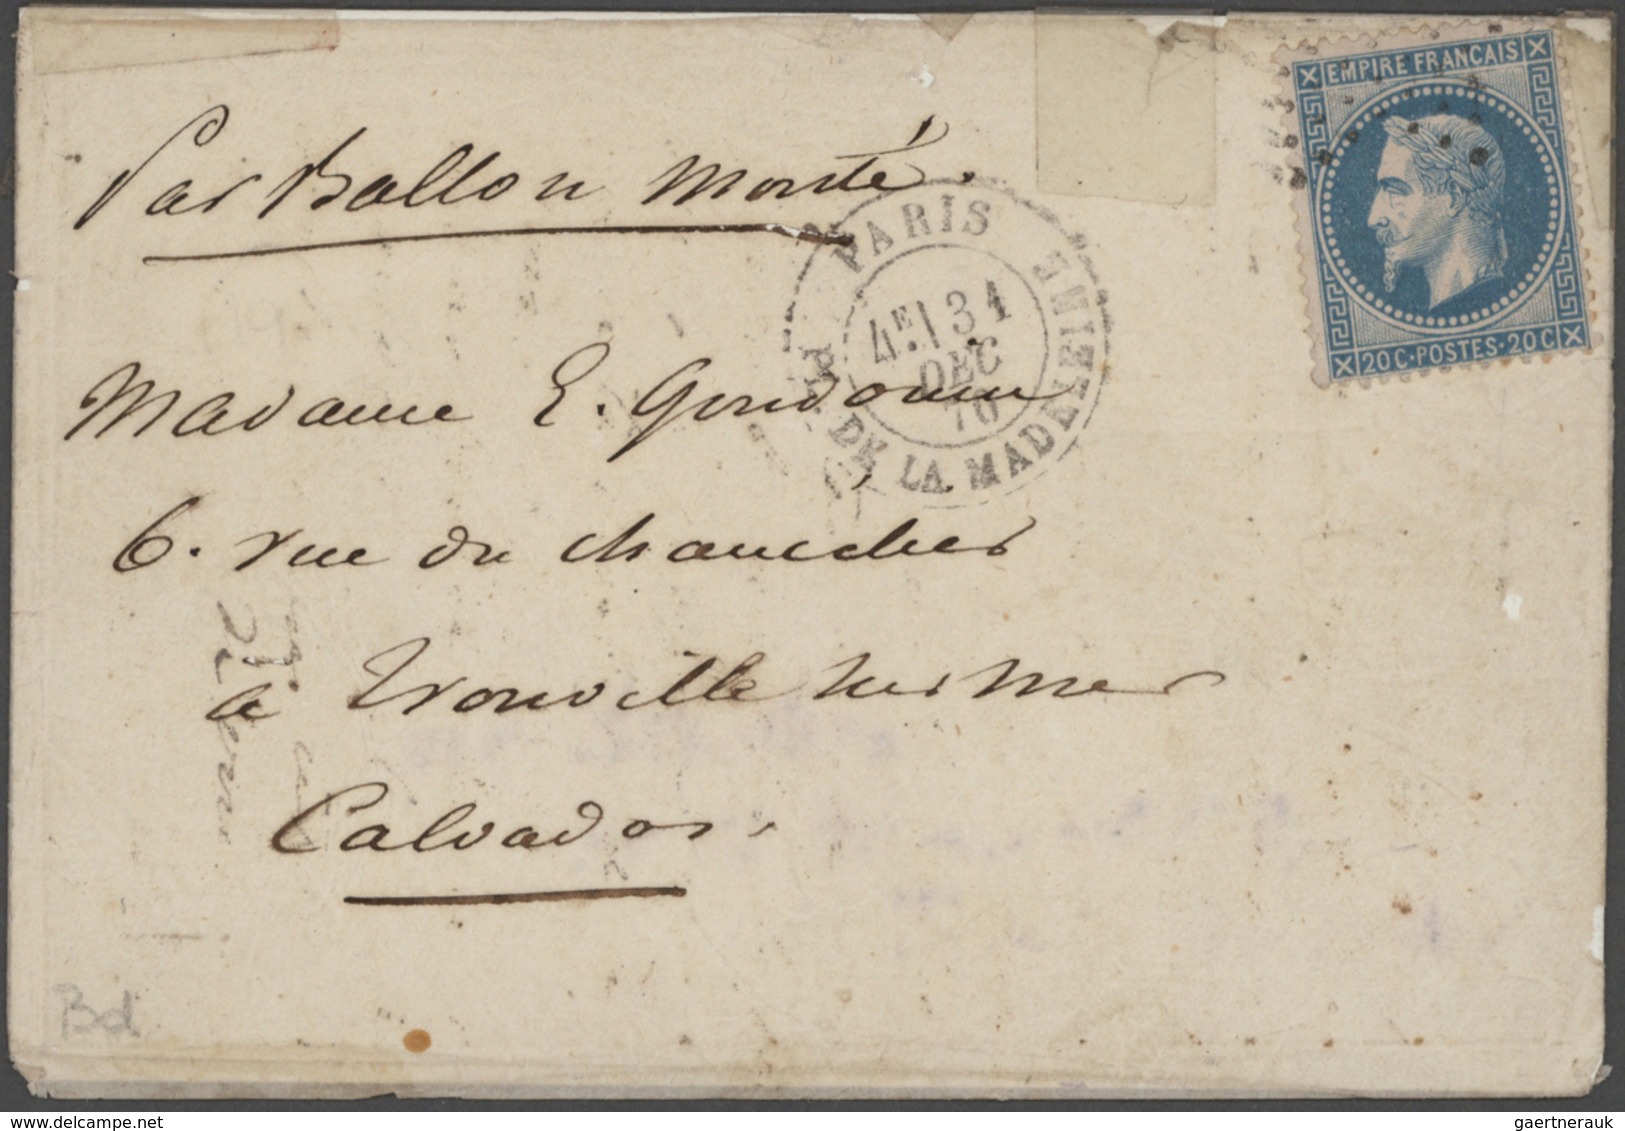 Par Ballon Monté.
EMPIRE FRANÇAIS
20 C · POSTES · 20 C
PARIS
PL. DE LA MADELEINE
4E 31
DEC
70
Madame E.
6. rue du
à Trouville sur mer
Calvados.
Bd
gaertnerauk@delcampe.net